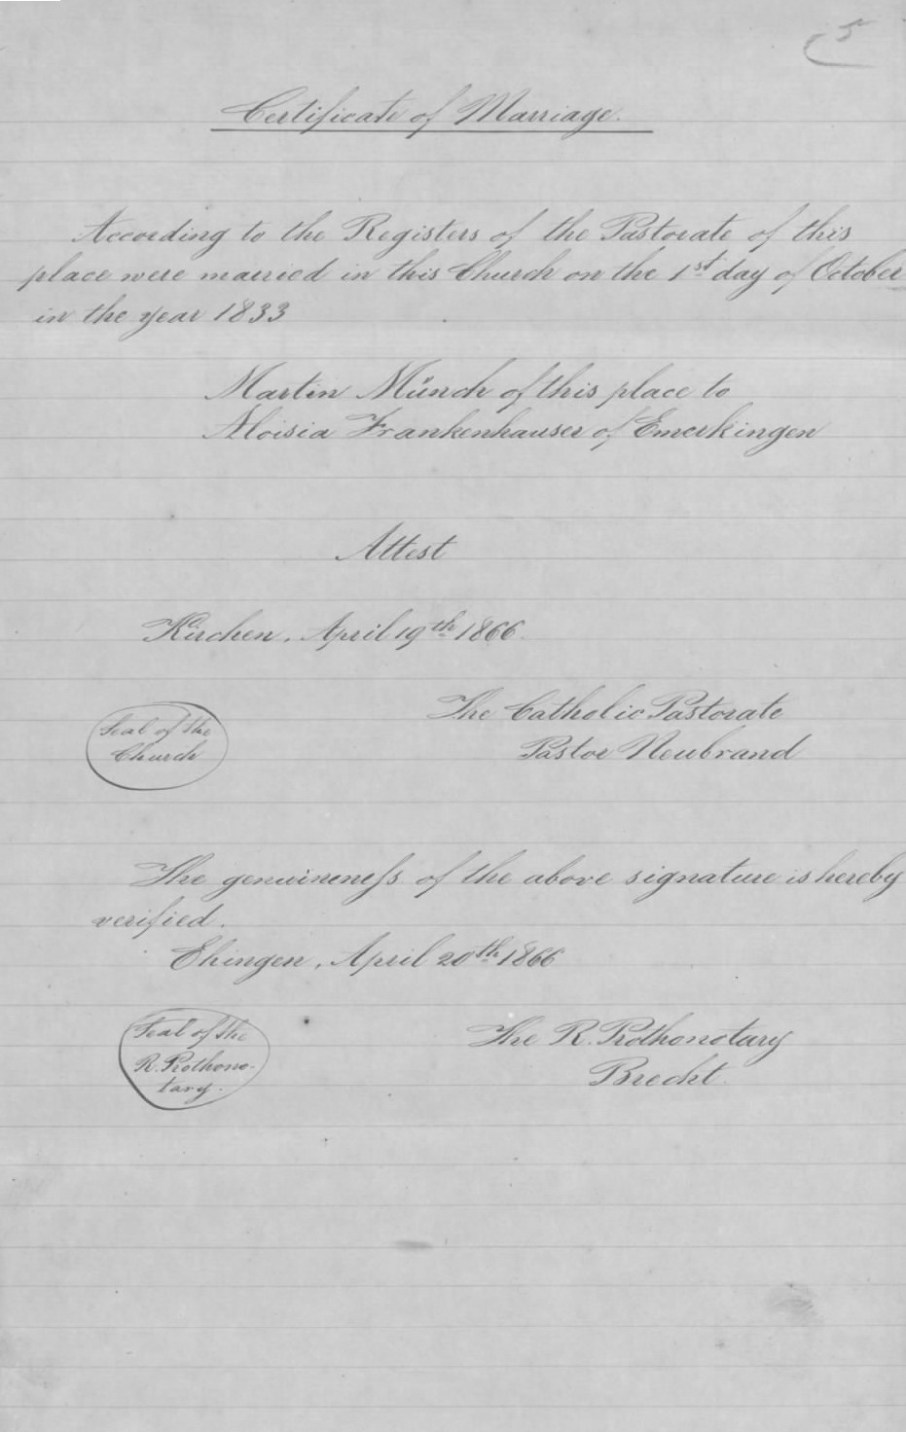 5
Certificate of Marriage.
According to the Registers of the Pastorate of this
place were married in this Church on the 1st day of October
in the year 1833
Martin Münch of this place to
Aloisia Frankenhauser of Emerkingen
Attest
Kirchen, April 19th 1866.
The Catholic Pastorate
Seal of the
Church
Pastor Neubrand
The genuineness of the above signature is hereby
verified.
Ehingen, April 20th 1866
Seal of the
R. Prothono-
tary.
The R. Prothonotary
Brecht.